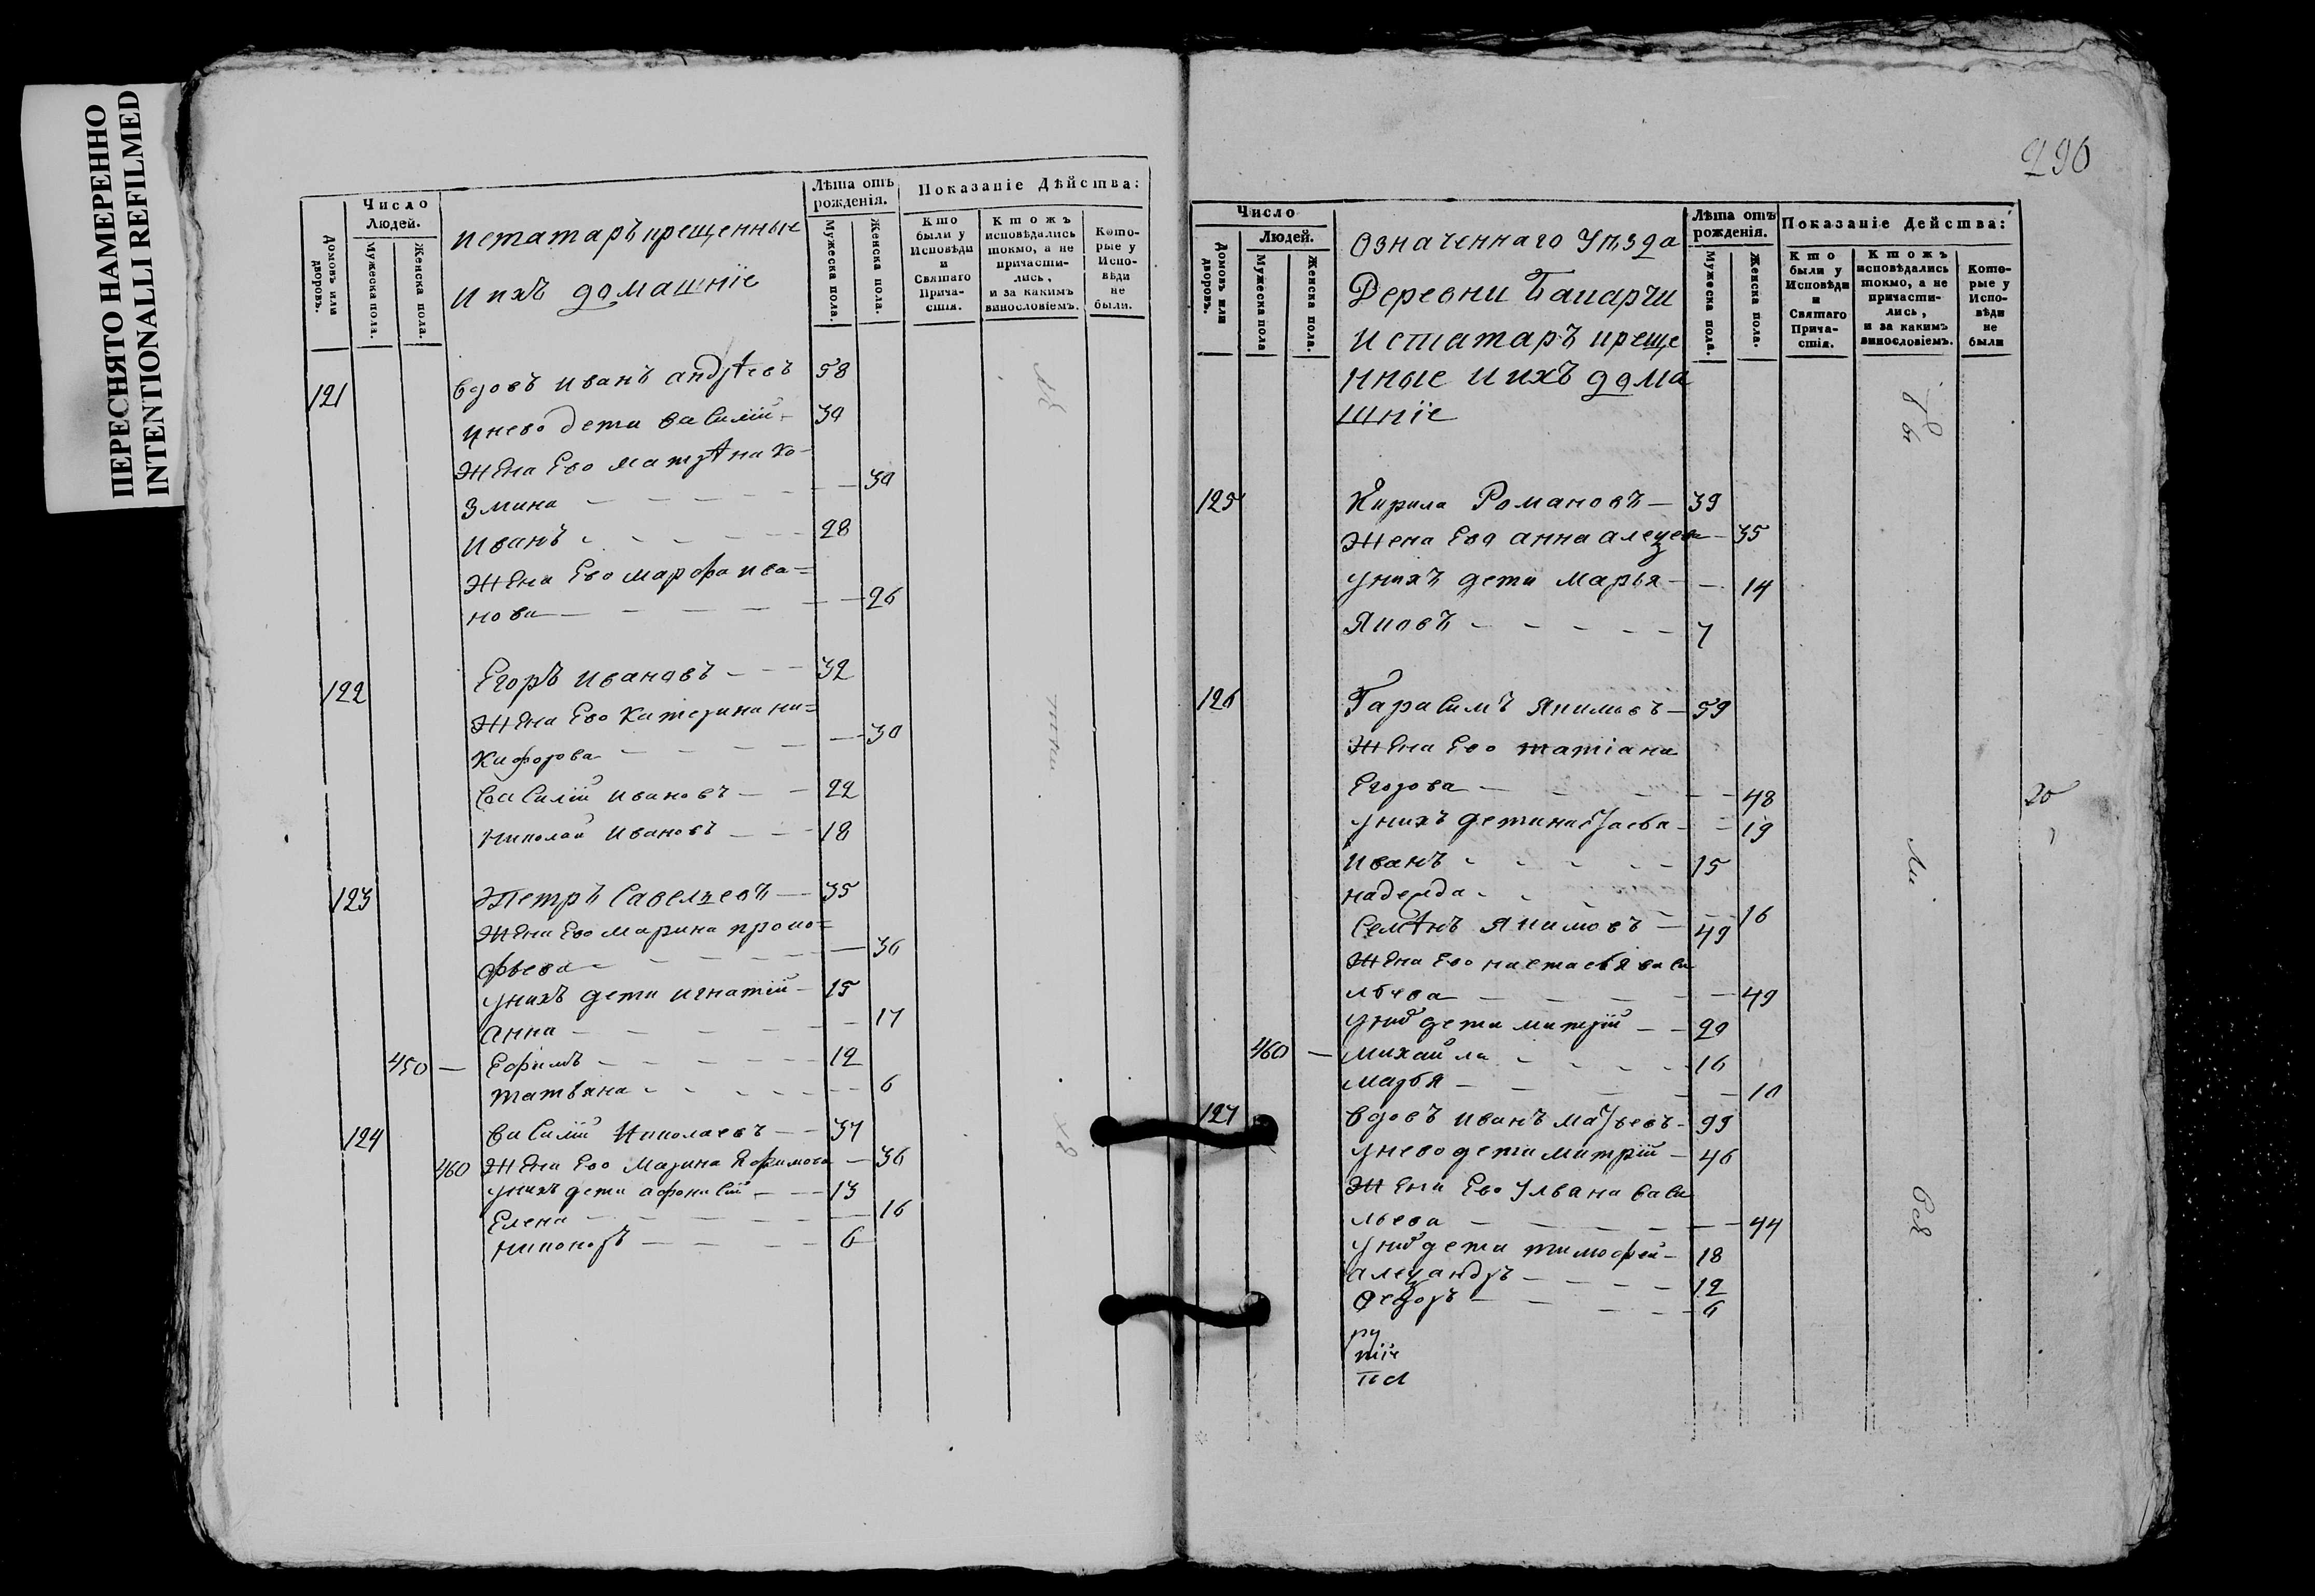 ПЕРЕСНЯТО НАМЕРЕННО
INTENTIONALLI REFILMED
Домовъ или дворовъ.
Число Людей.
Мужеска пола.
Женска пола.
истатаръ крещенные
и ихъ домашніе
Лѣта отъ рожденія.
Мужеска пола.
Женска пола.
Показаніе Дѣйства:
Кто были у Исповѣди и Святаго Прича-стія.
Ктожъ исповѣдались токмо, а не причасти-лись, и за какимъ винословіемъ.
Кото-рые у Испо-вѣди не были.
121 вдовъ иванъ андреевъ 58
унево дети василий 30
жена Ево матрена ко-
змина — 30
иванъ — 28
жена Ево марфа ива=
нова — 26
122 Егоръ ивановъ — 32
жена Ево катерина ни=
кифорова — 30
василий ивановъ — 22
николай ивановъ — 18
123 Петръ савельевъ — 35
жена Ево марина проко=
фьева — 36
унихъ дети игнатий — 15
анна — 17
450 — Ефимъ — 12
татьяна — 6
124 василий николаевъ — 37
460 жена Ево марина Ефимова — 36
унихъ дети афонасий — 13
Елена — 16
никоноръ — 6
290
Домовъ или дворовъ.
Число Людей.
Мужеска пола
Женска пола.
означеннаго уѣзда
Деревни Бакарчи
истатаръ креще
нные и ихъ дома
шніе
Лѣта отъ рожденія.
Мужеска пола.
Женска пола.
Показаніе Действа:
Кто были у Исповѣди и Святаго Прича-стія.
Ктожъ исповѣдались токмо, а не причасти-лись, и за какимъ винословіемъ.
Кото-рые у Испо-вѣди не были
125 Кирила Романовъ — 39
жена Ева анна алексеева — 35
унихъ дети марья — 14
Яковъ — 7
126 Гарасимъ Якимовъ — 59
жена Ево татіана
Егорова — 48
унихъ дети настасья — 19
иванъ — 15
надежда — 16
семенъ Якимовъ — 49
жена Ево настасья васи
льева — 49
унихъ дети митрій — 20
460 — михаила — 16
марья — 10
127 вдовъ иванъ матвеевъ — 99
унево дети митрій — 46
жена Ево ульяна васи
льева — 44
унихъ дети тимофей — 18
александръ — 12
Федоръ — 6
ру
тіи
20